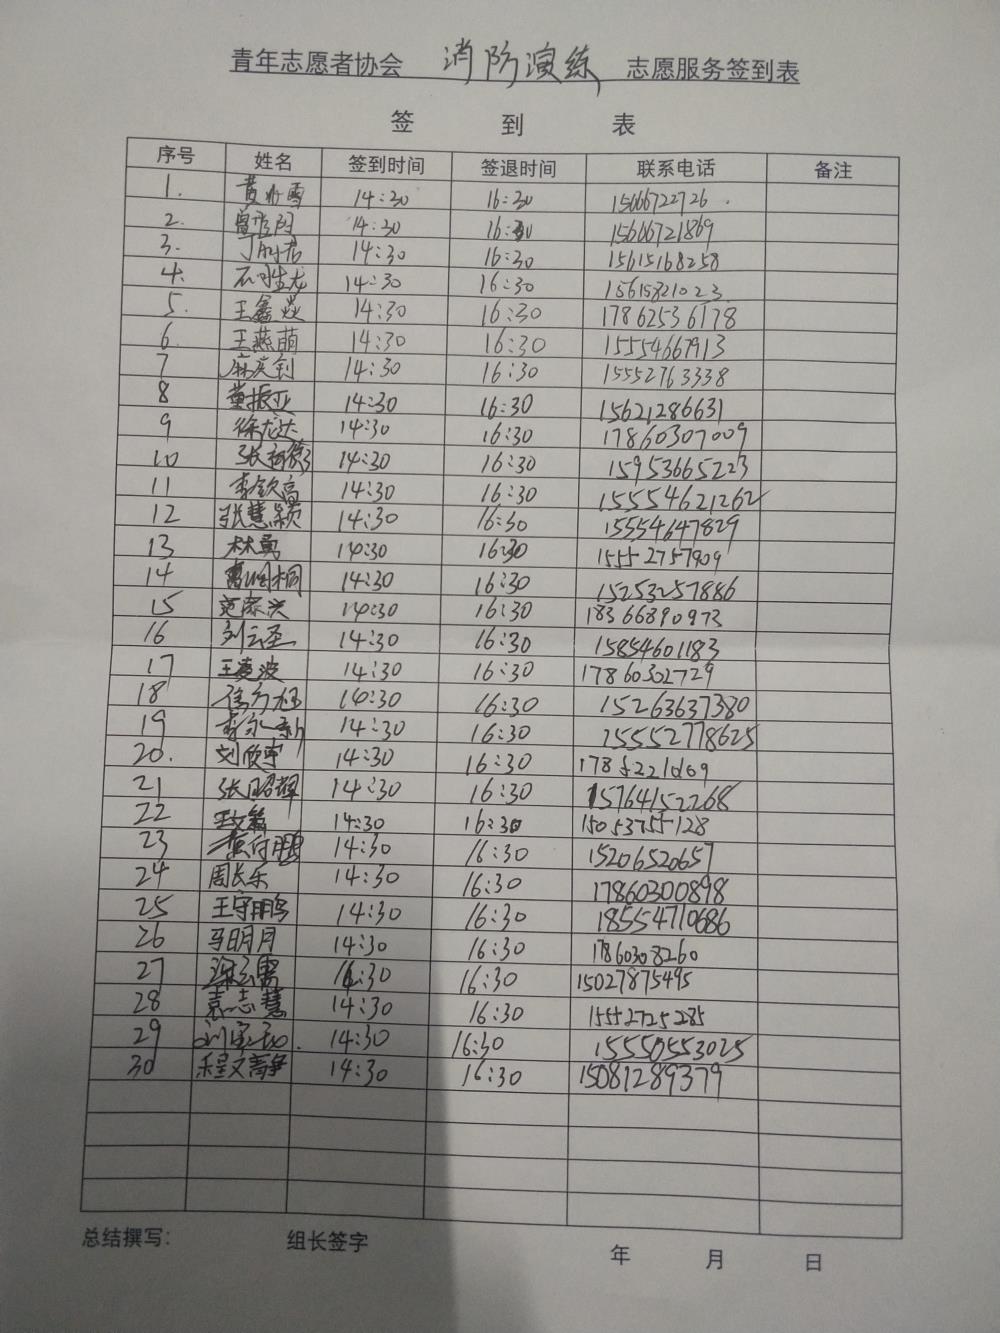 青年志愿者协会 消防演练 志愿服务签到表
签 到 表
序号 姓名 签到时间 签退时间 联系电话 备注
1. 14:30 16:30 15066722726
2. 14:30 16:30 15606721869
3. 14:30 16:30 15615168258
4. 14:30 16:30 15615821023
5. 王鑫焱 14:30 16:30 17862536178
6. 王燕萌 14:30 16:30 15554667913
7 麻英钊 14:30 16:30 15552763338
8 董振亚 14:30 16:30 15621286631
9 徐龙达 14:30 16:30 17860307009
10 14:30 16:30 15953665223
11 李钦高 14:30 16:30 15554621262
12 张慧颖 14:30 16:30 15554647829
13 林勇 14:30 16:30 15552757909
14 14:30 16:30 15253257886
15 范家兴 14:30 16:30 18366890973
16 刘云圣 14:30 16:30 15854601183
17 王凌波 14:30 16:30 17860302729
18 14:30 16:30 15263637380
19 14:30 16:30 15552778625
20. 刘欣宇 14:30 16:30
21 张昭辉 14:30 16:30 15764152268
22 14:30 16:30 15053755128
23 14:30 16:30 15206520657
24 周长乐 14:30 16:30 17860300898
25 王守鹏 14:30 16:30 18554710686
26 马明月 14:30 16:30 17860308260
27 16:30 16:30 15027875495
28 袁志慧 14:30 16:30 15552725285
29 14:30 16:30 15550553025
30 程文静 14:30 16:30 15081289379
总结撰写： 组长签字 年 月 日